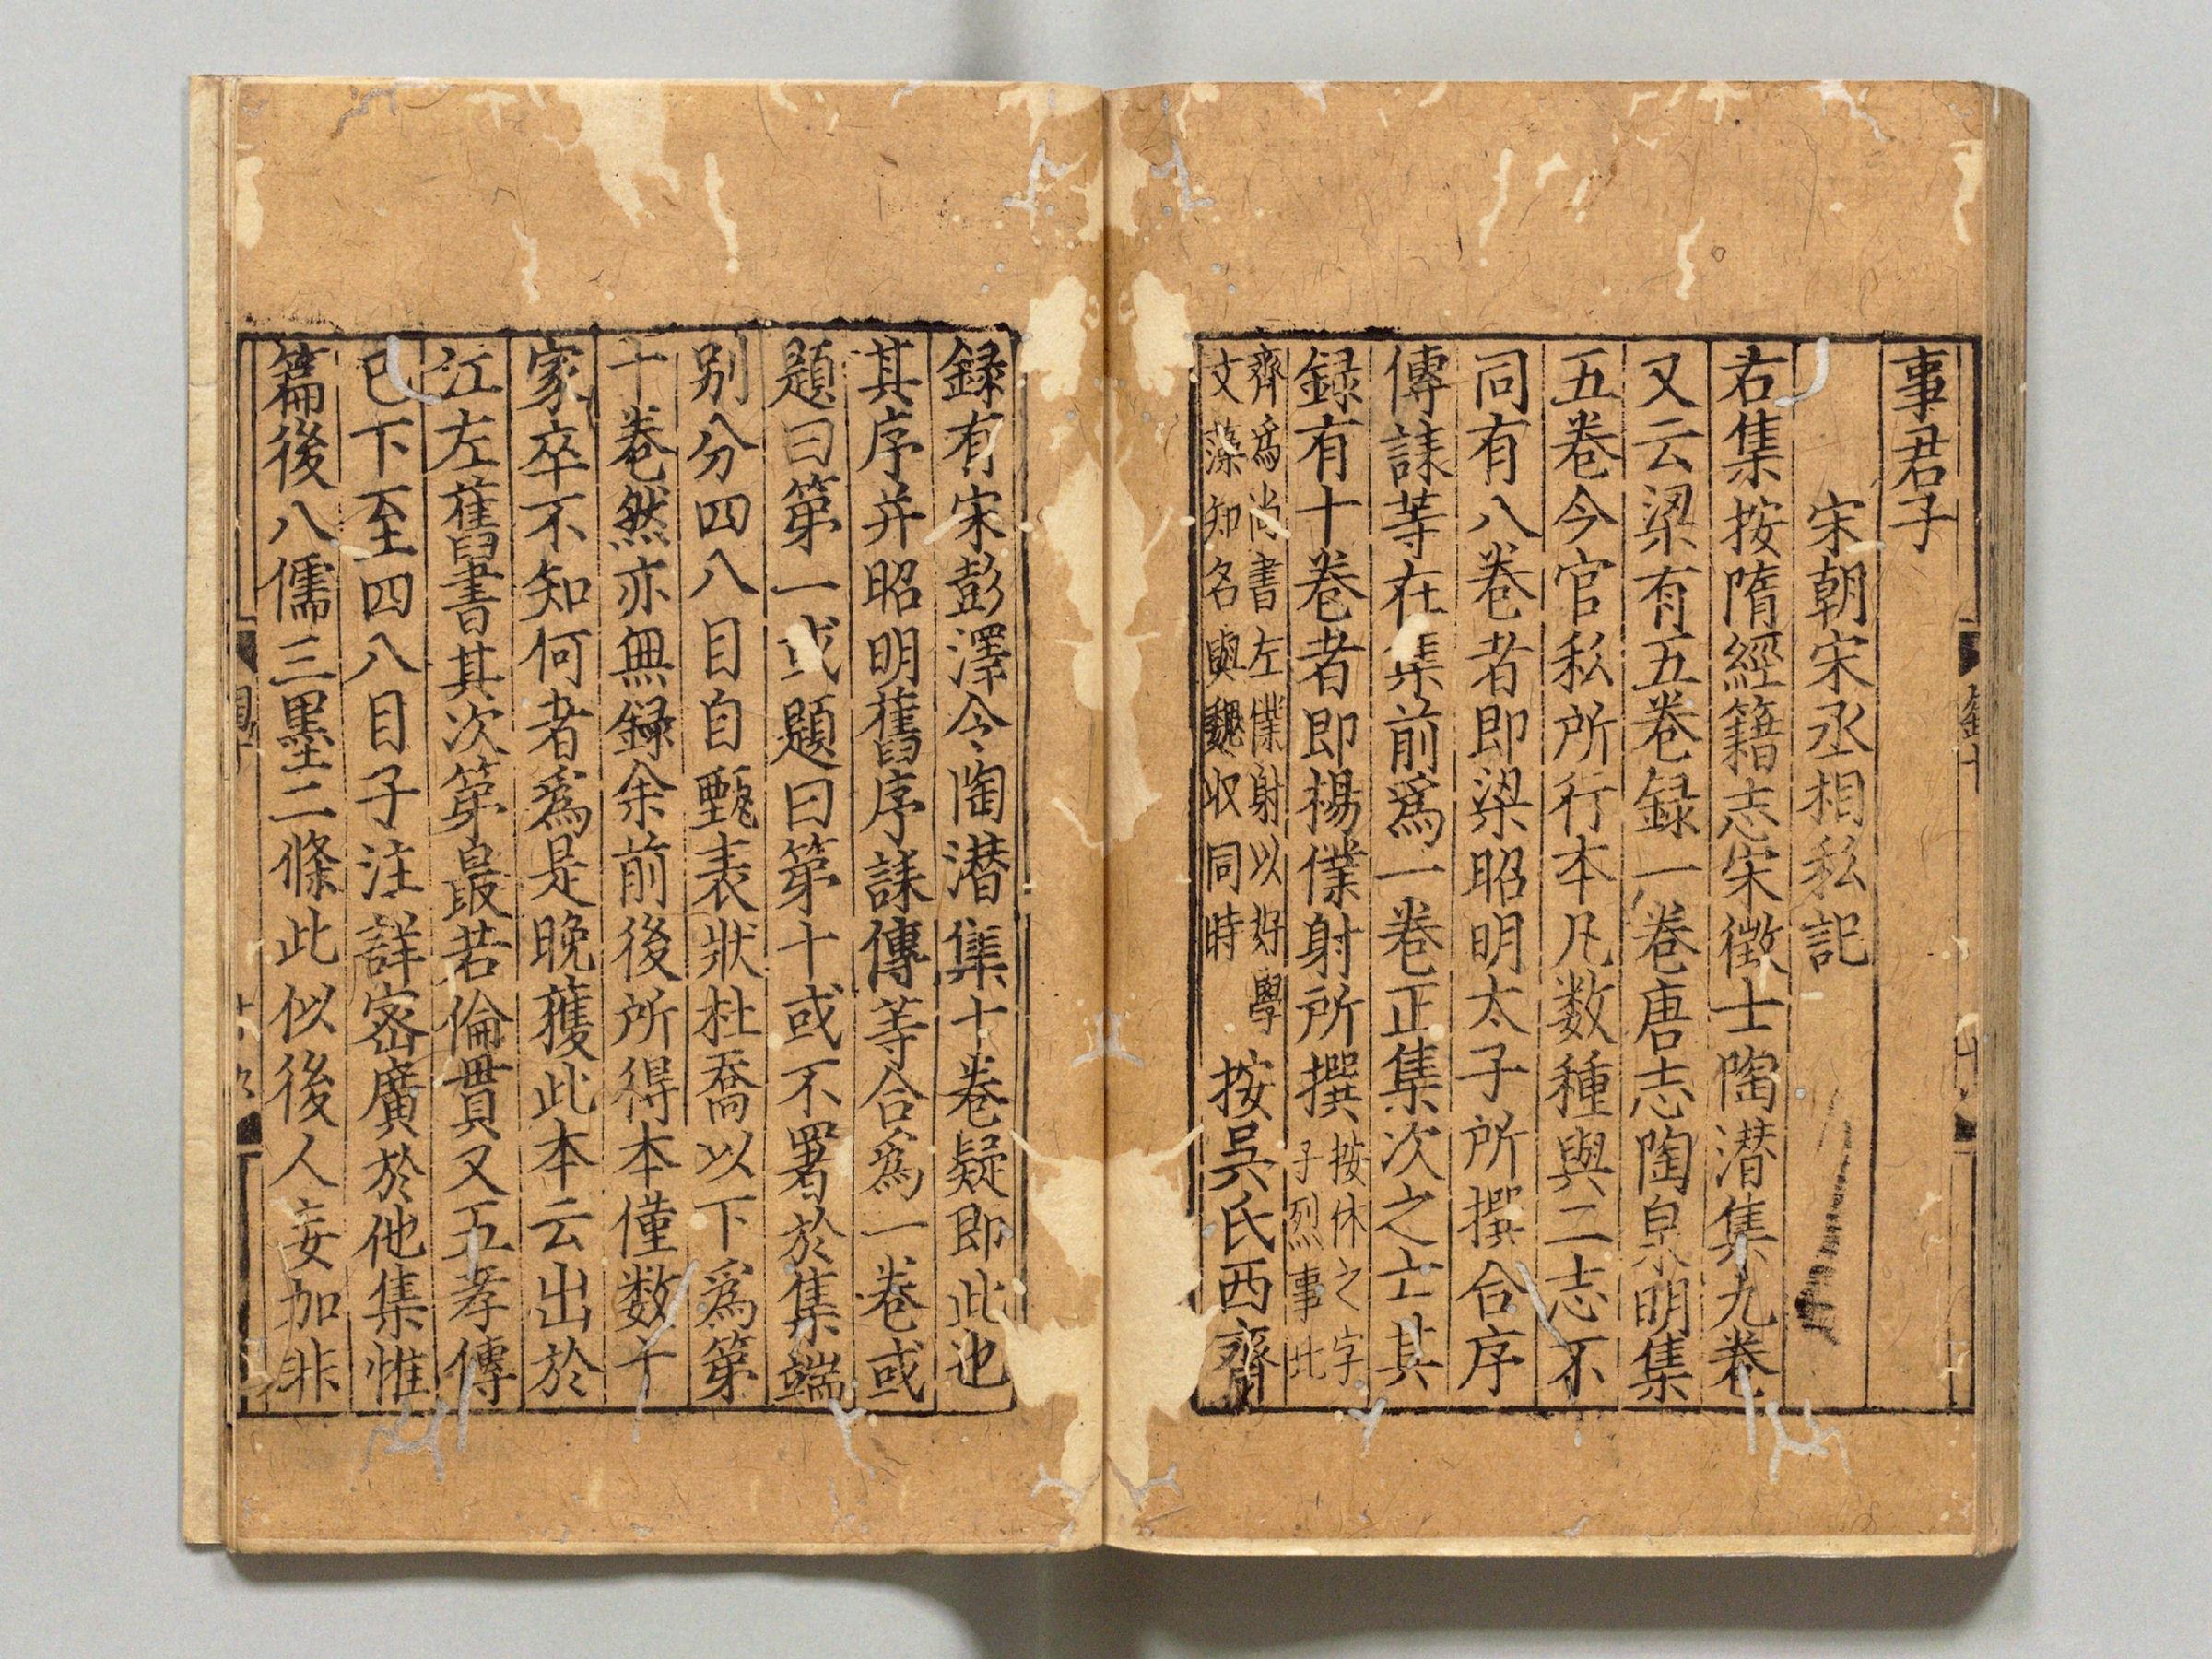 事君子
宋朝宋丞相私記
右集按隋經籍志宋徴士陶潜集九巻
又云梁有五巻録一巻唐志陶泉明集
五巻今官私所行本凡数種與二志不
同有八巻者即梁昭明太子所撰合序
傳誄等在集前爲一巻正集次之亡其
録有十巻者即楊僕射所撰按休之字子烈事北
齊爲尚書左僕射以好學文藻知名與魏収同時按吳氏西齋
録有宋彭澤令陶潜集十巻疑即此也
其序并昭明舊序誄傳等合爲一巻或
題曰第一或題曰第十或不署於集端
别分四八目自甄表狀杜喬以下爲第
十巻然亦無録余前後所得本僅数十
家卒不知何者爲是晩獲此本云出於
江左舊書其次第最若倫貫又五孝傳
已下至四八目子注詳密廣於他集惟
篇後八儒三墨二條此似後人妄加非